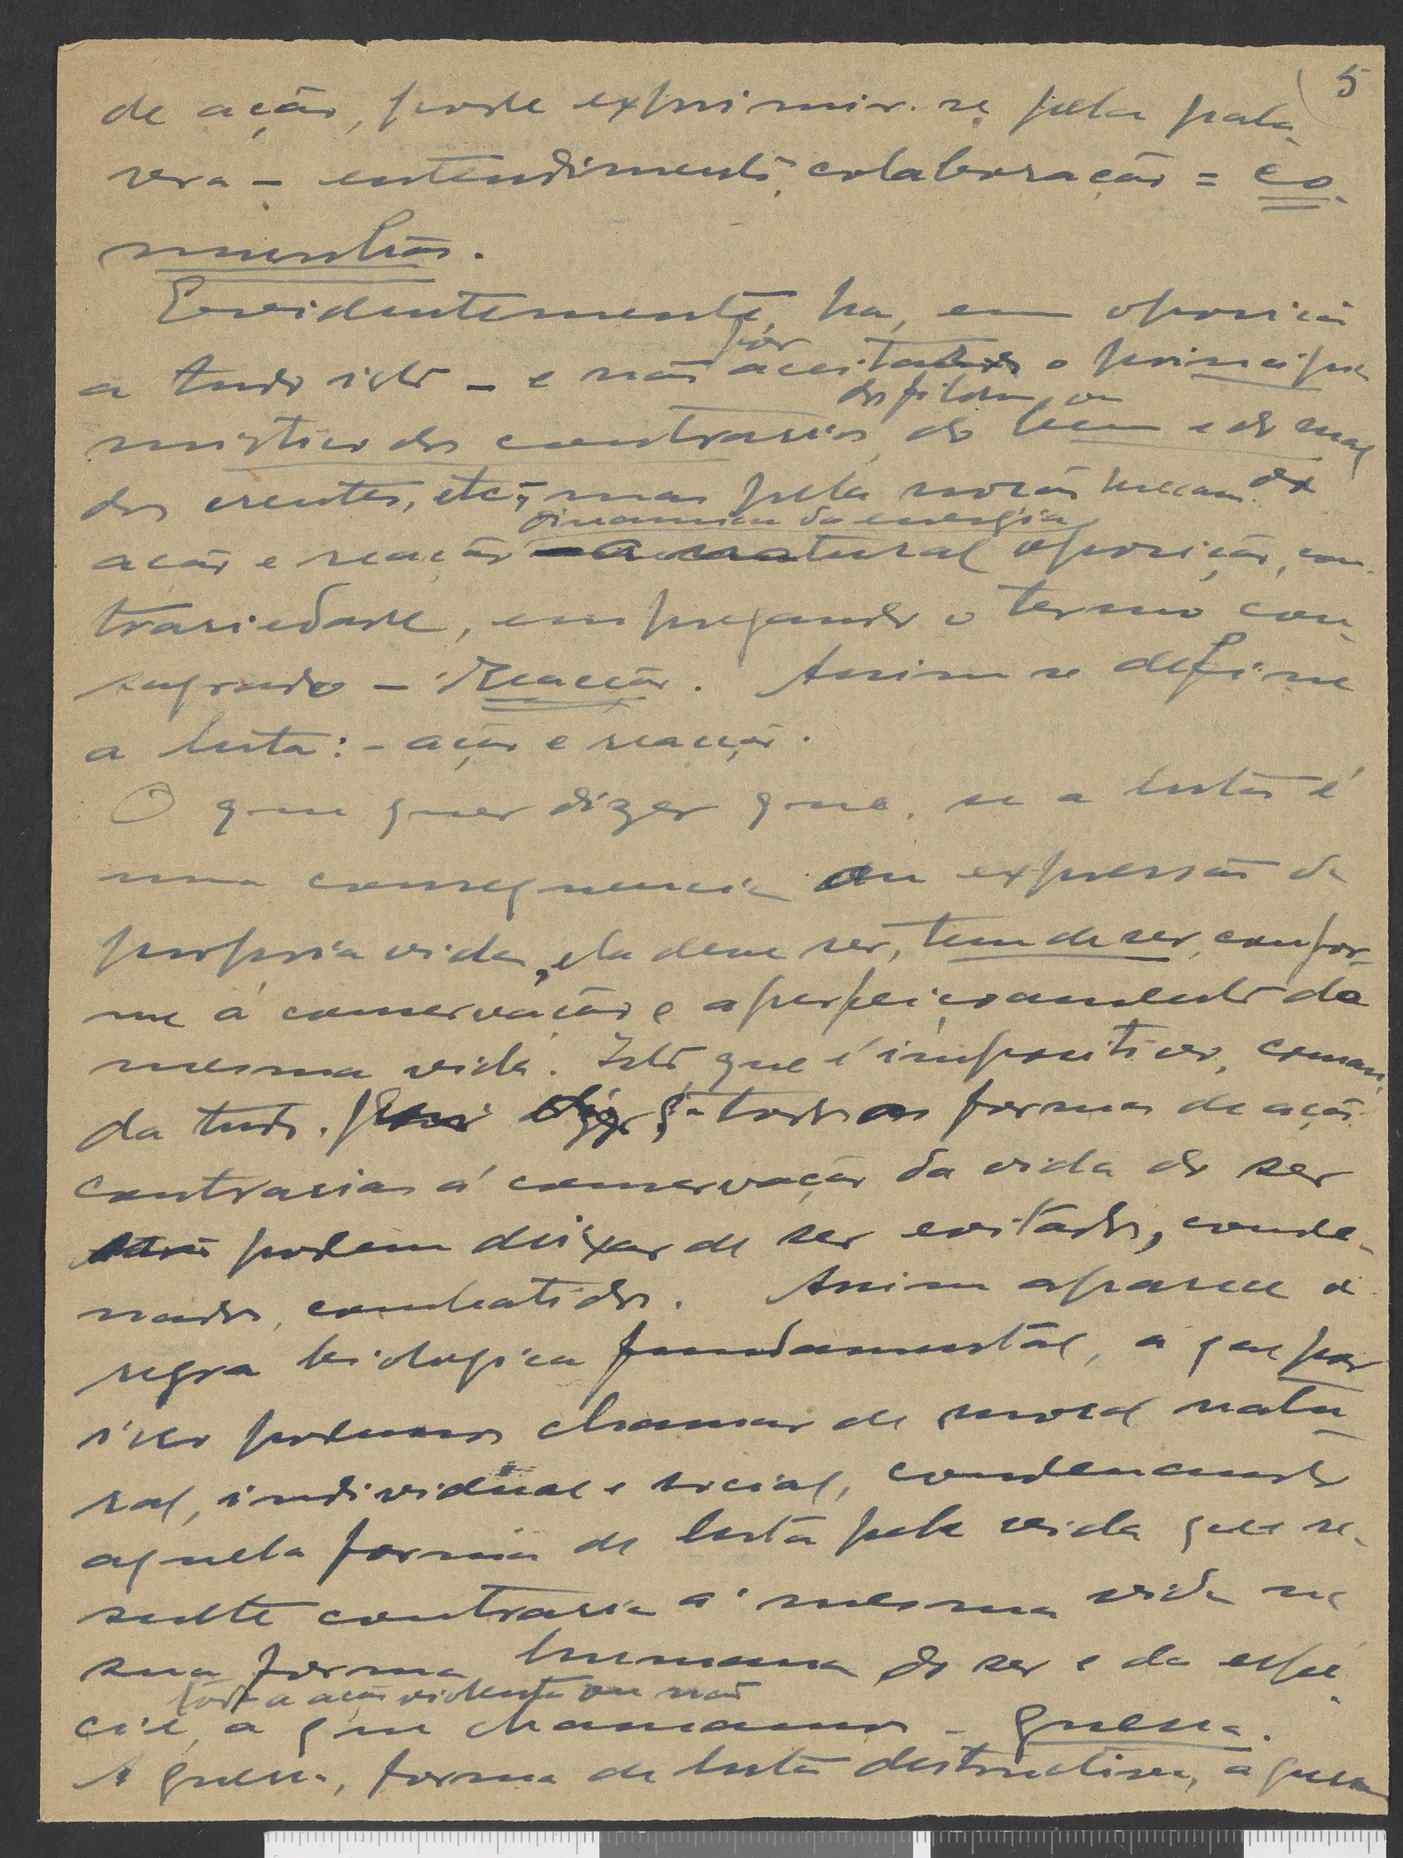 5
de ação, pode exprimir-se pela pala-
vra – entendimento, colaboração = co-
munhão.
Evidentemente, ha, em oposição
a tudo isto – e não por aceitar o principio
mistico dos contrarios, do bem e do mal
dos filosofos ou
dos crentes, etc, mas pela noção mecanica de
dinamica da energia
acão e reacção natural oposição, con-
trariedade, empregando o termo con-
sagrado – Reacção. Assim se define
a luta: – ação e reacção.
O que quer dizer que, se a luta é
uma consequencia ou expressão da
propria vida, ela deve ser, tem de ser, confor-
me á conservação e aperfeiçoamento da
mesma vida. Isto, que é impositivo, coman-
da tudo. todas as formas de ação
contrarias á conservação da vida do ser
podem deixar de ser evitados, conde-
nados, combatidos. Assim aparece a
regra biologica fundamental, a que por
isso podemos chamar de moral natu-
ral, individual e social, condenando
aquela forma de luta pela vida que re-
sulte contraria á mesma vida na
sua forma humana do ser e da espé-
toda a ação violenta ou não
cie, a que chamamos – guerra.
A guerra, forma de luta destrutiva, a guerra